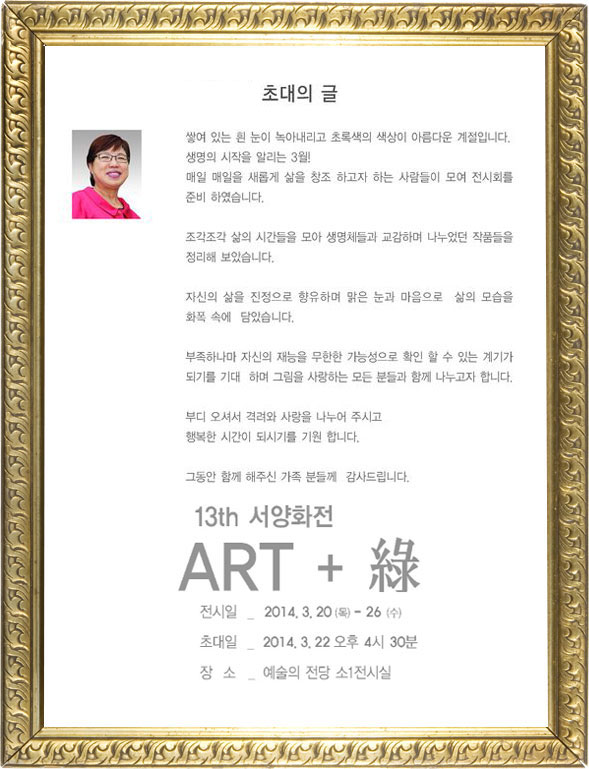 초대의 글
쌓여 있는 흰 눈이 녹아내리고 초록색의 색상이 아름다운 계절입니다.
생명의 시작을 알리는 3월!
매일 매일을 새롭게 삶을 창조 하고자 하는 사람들이 모여 전시회를
준비 하였습니다.
조각조각 삶의 시간들을 모아 생명체들과 교감하며 나누었던 작품들을
정리해 보았습니다.
자신의 삶을 진정으로 향유하며 맑은 눈과 마음으로 삶의 모습을
화폭 속에 담았습니다.
부족하나마 자신의 재능을 무한한 가능성으로 확인 할 수 있는 계기가
되기를 기대 하며 그림을 사랑하는 모든 분들과 함께 나누고자 합니다.
부디 오셔서 격려와 사랑을 나누어 주시고
행복한 시간이 되시기를 기원 합니다.
그동안 함께 해주신 가족 분들께 감사드립니다.
13th 서양화전
ART + 綠
전시일 _ 2014. 3. 20 (목) - 26 (수)
초대일 _ 2014. 3. 22 오후 4시 30분
장 소 _ 예술의 전당 소1전시실